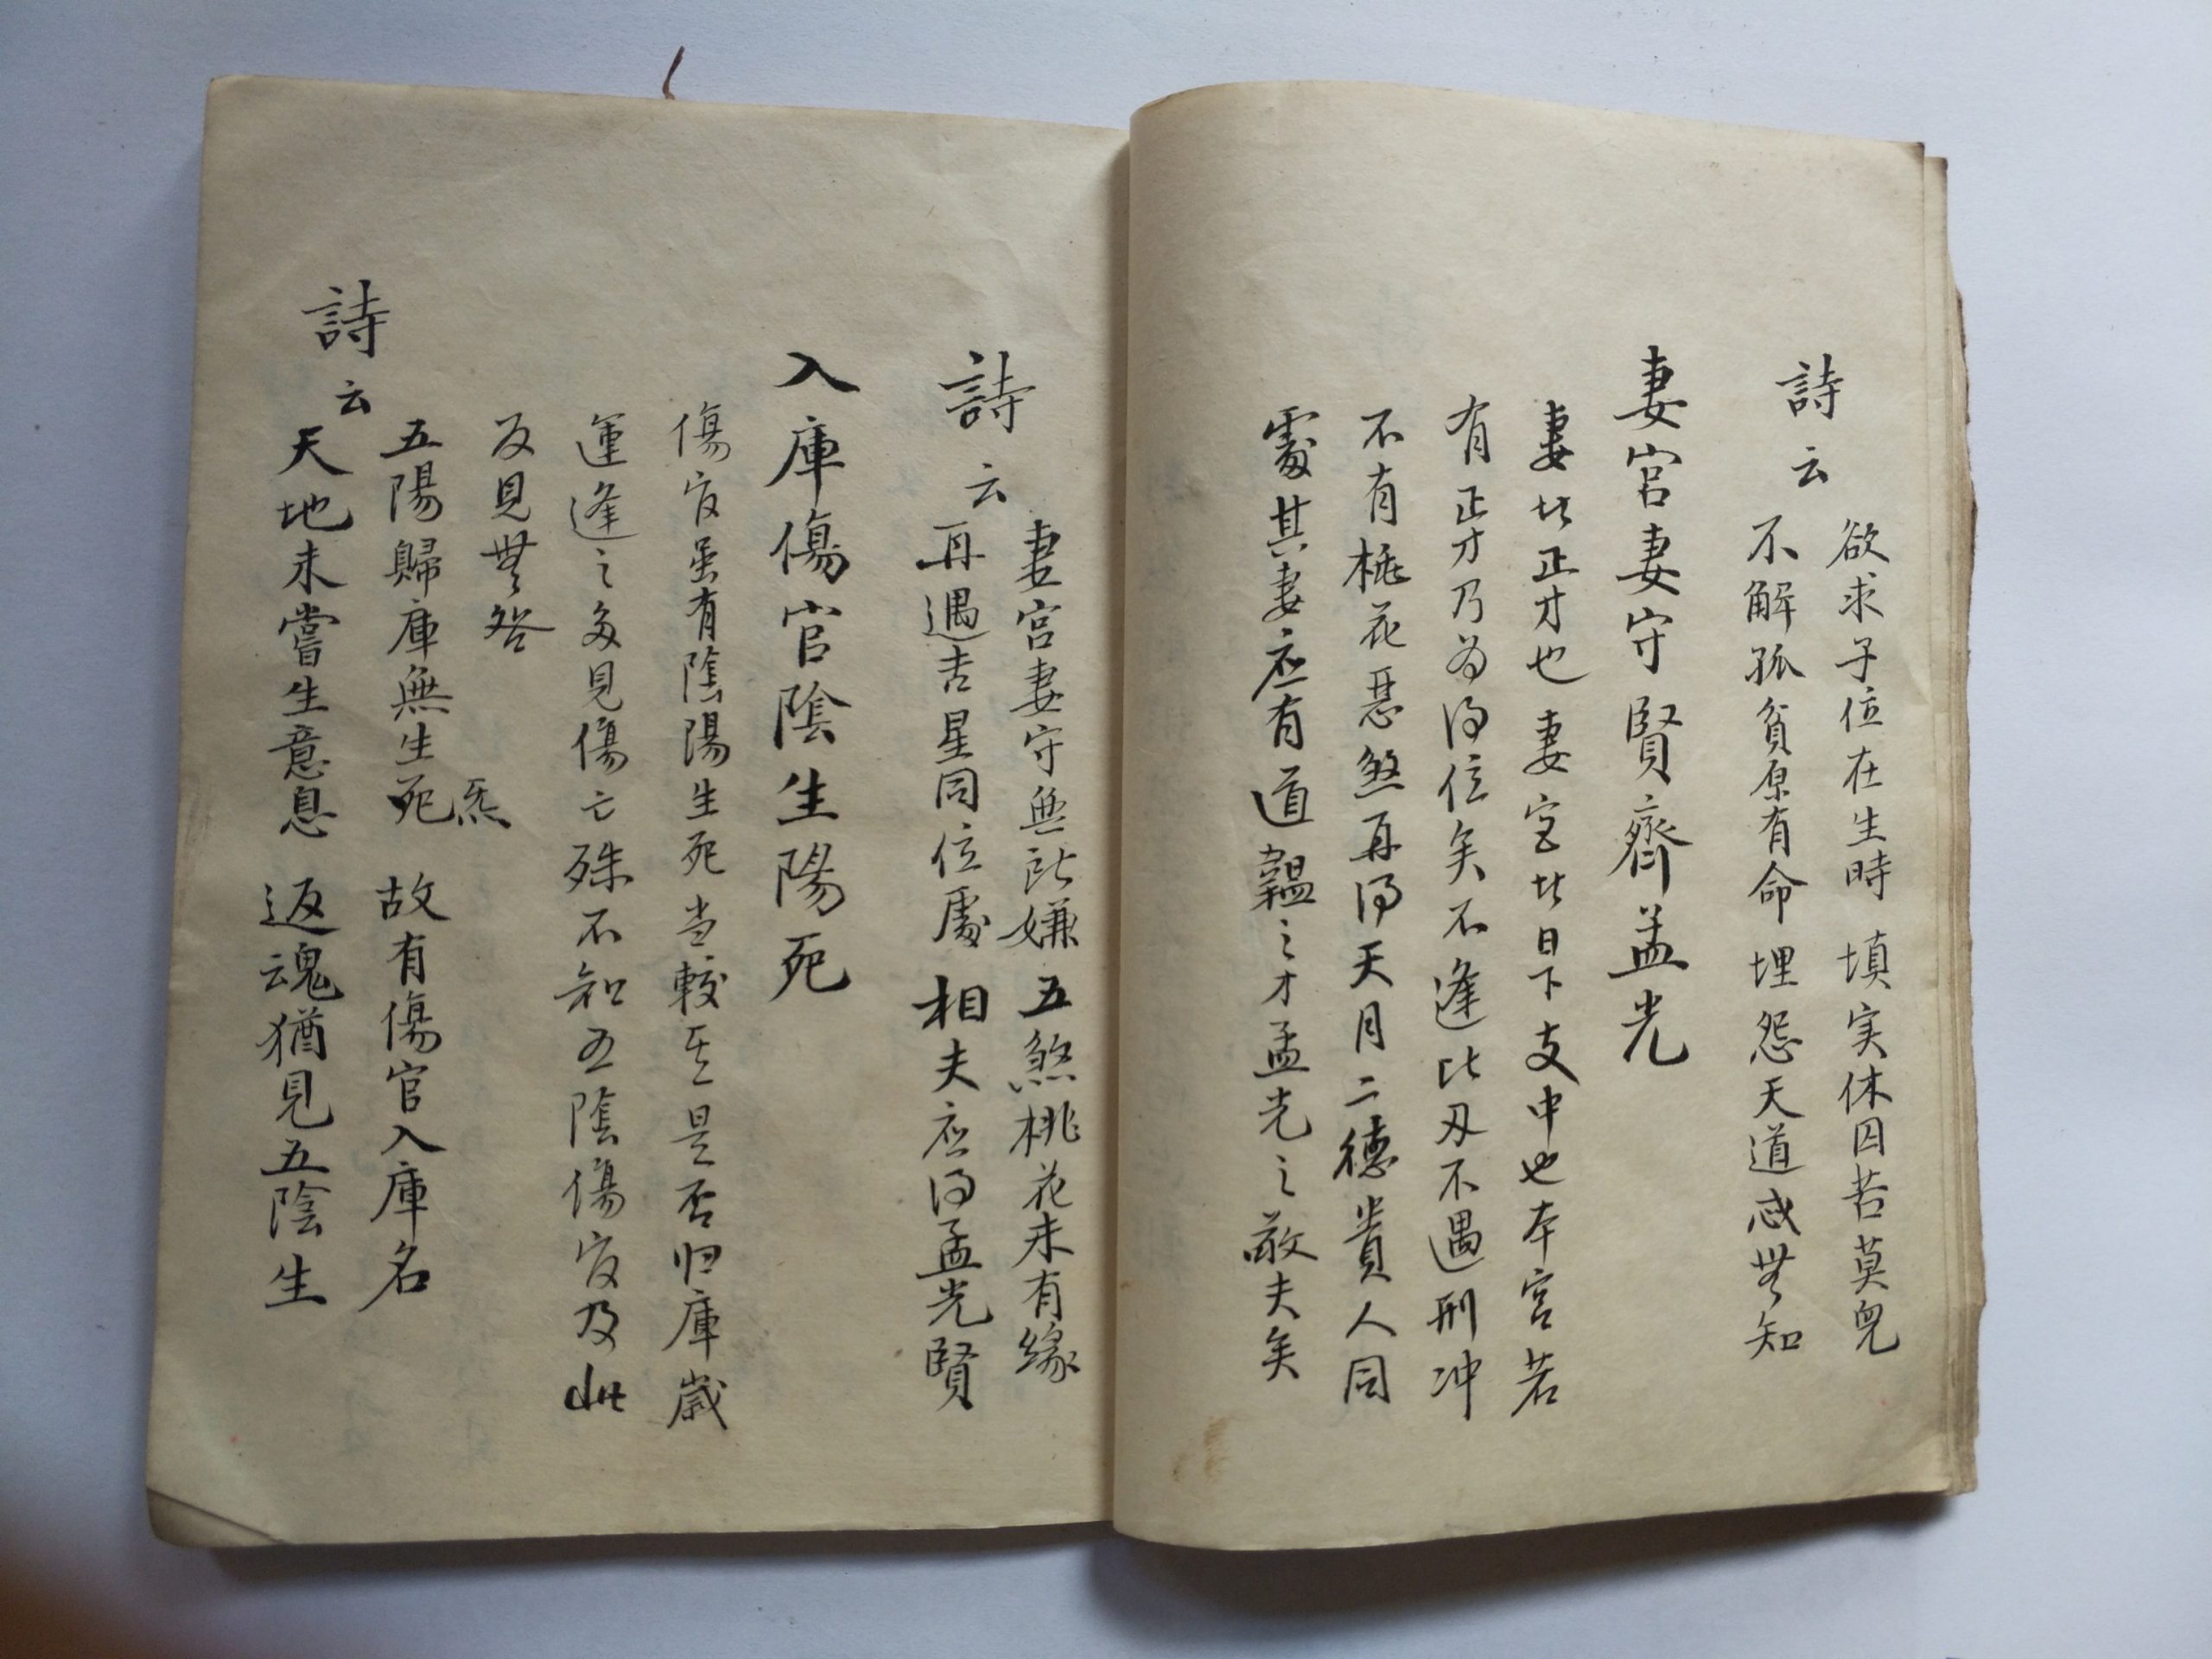 詩云
欲求子位在生時 填実休囚若莫兒
不解孤貧原有命 埋怨天道或無知
妻宮妻守賢齊孟光
妻比正才也妻宮比日下支中也本宮若
有正才乃为得位矣不逢比刃不遇刑冲
不有桃花惡煞再得天月二德貴人同
處其妻应有道韞之才孟光之敬夫矣
詩云
妻宮妻守無訛嫌 五煞桃花未有緣
再遇吉星同位處 相夫应得孟光賢
入庫傷官陰生陽死
傷官虽有陰陽生死当較其是否归庫歲
運逢之多見傷亡殊不知五陰傷官及此
反見無咎
五陽歸庫無生死炁 故有傷官入庫名
詩云
天地未嘗生意息 返魂猶見五陰生